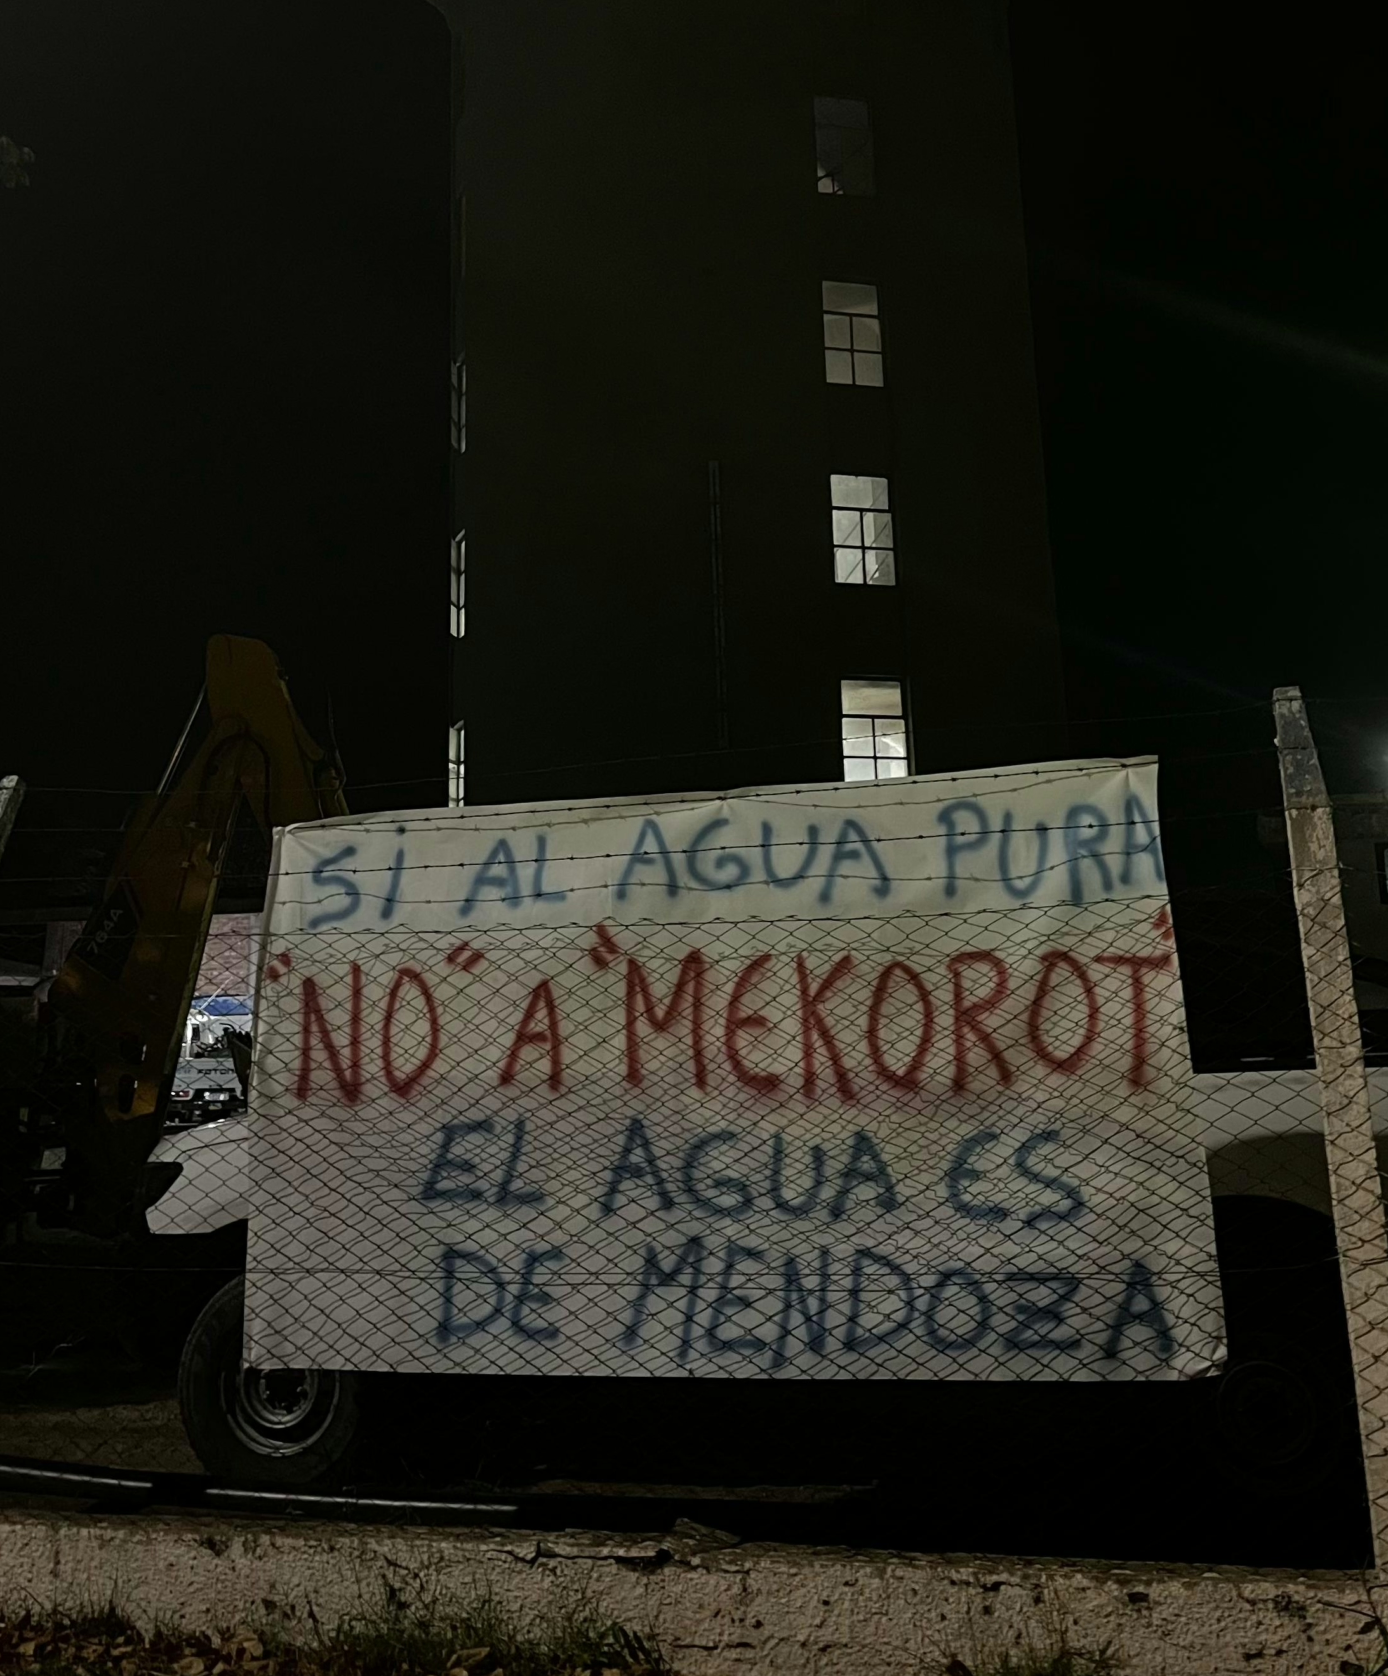 SÍ AL AGUA PURA
"NO" A "MEKOROT"
EL AGUA ES
DE MENDOZA
764A
FOTON